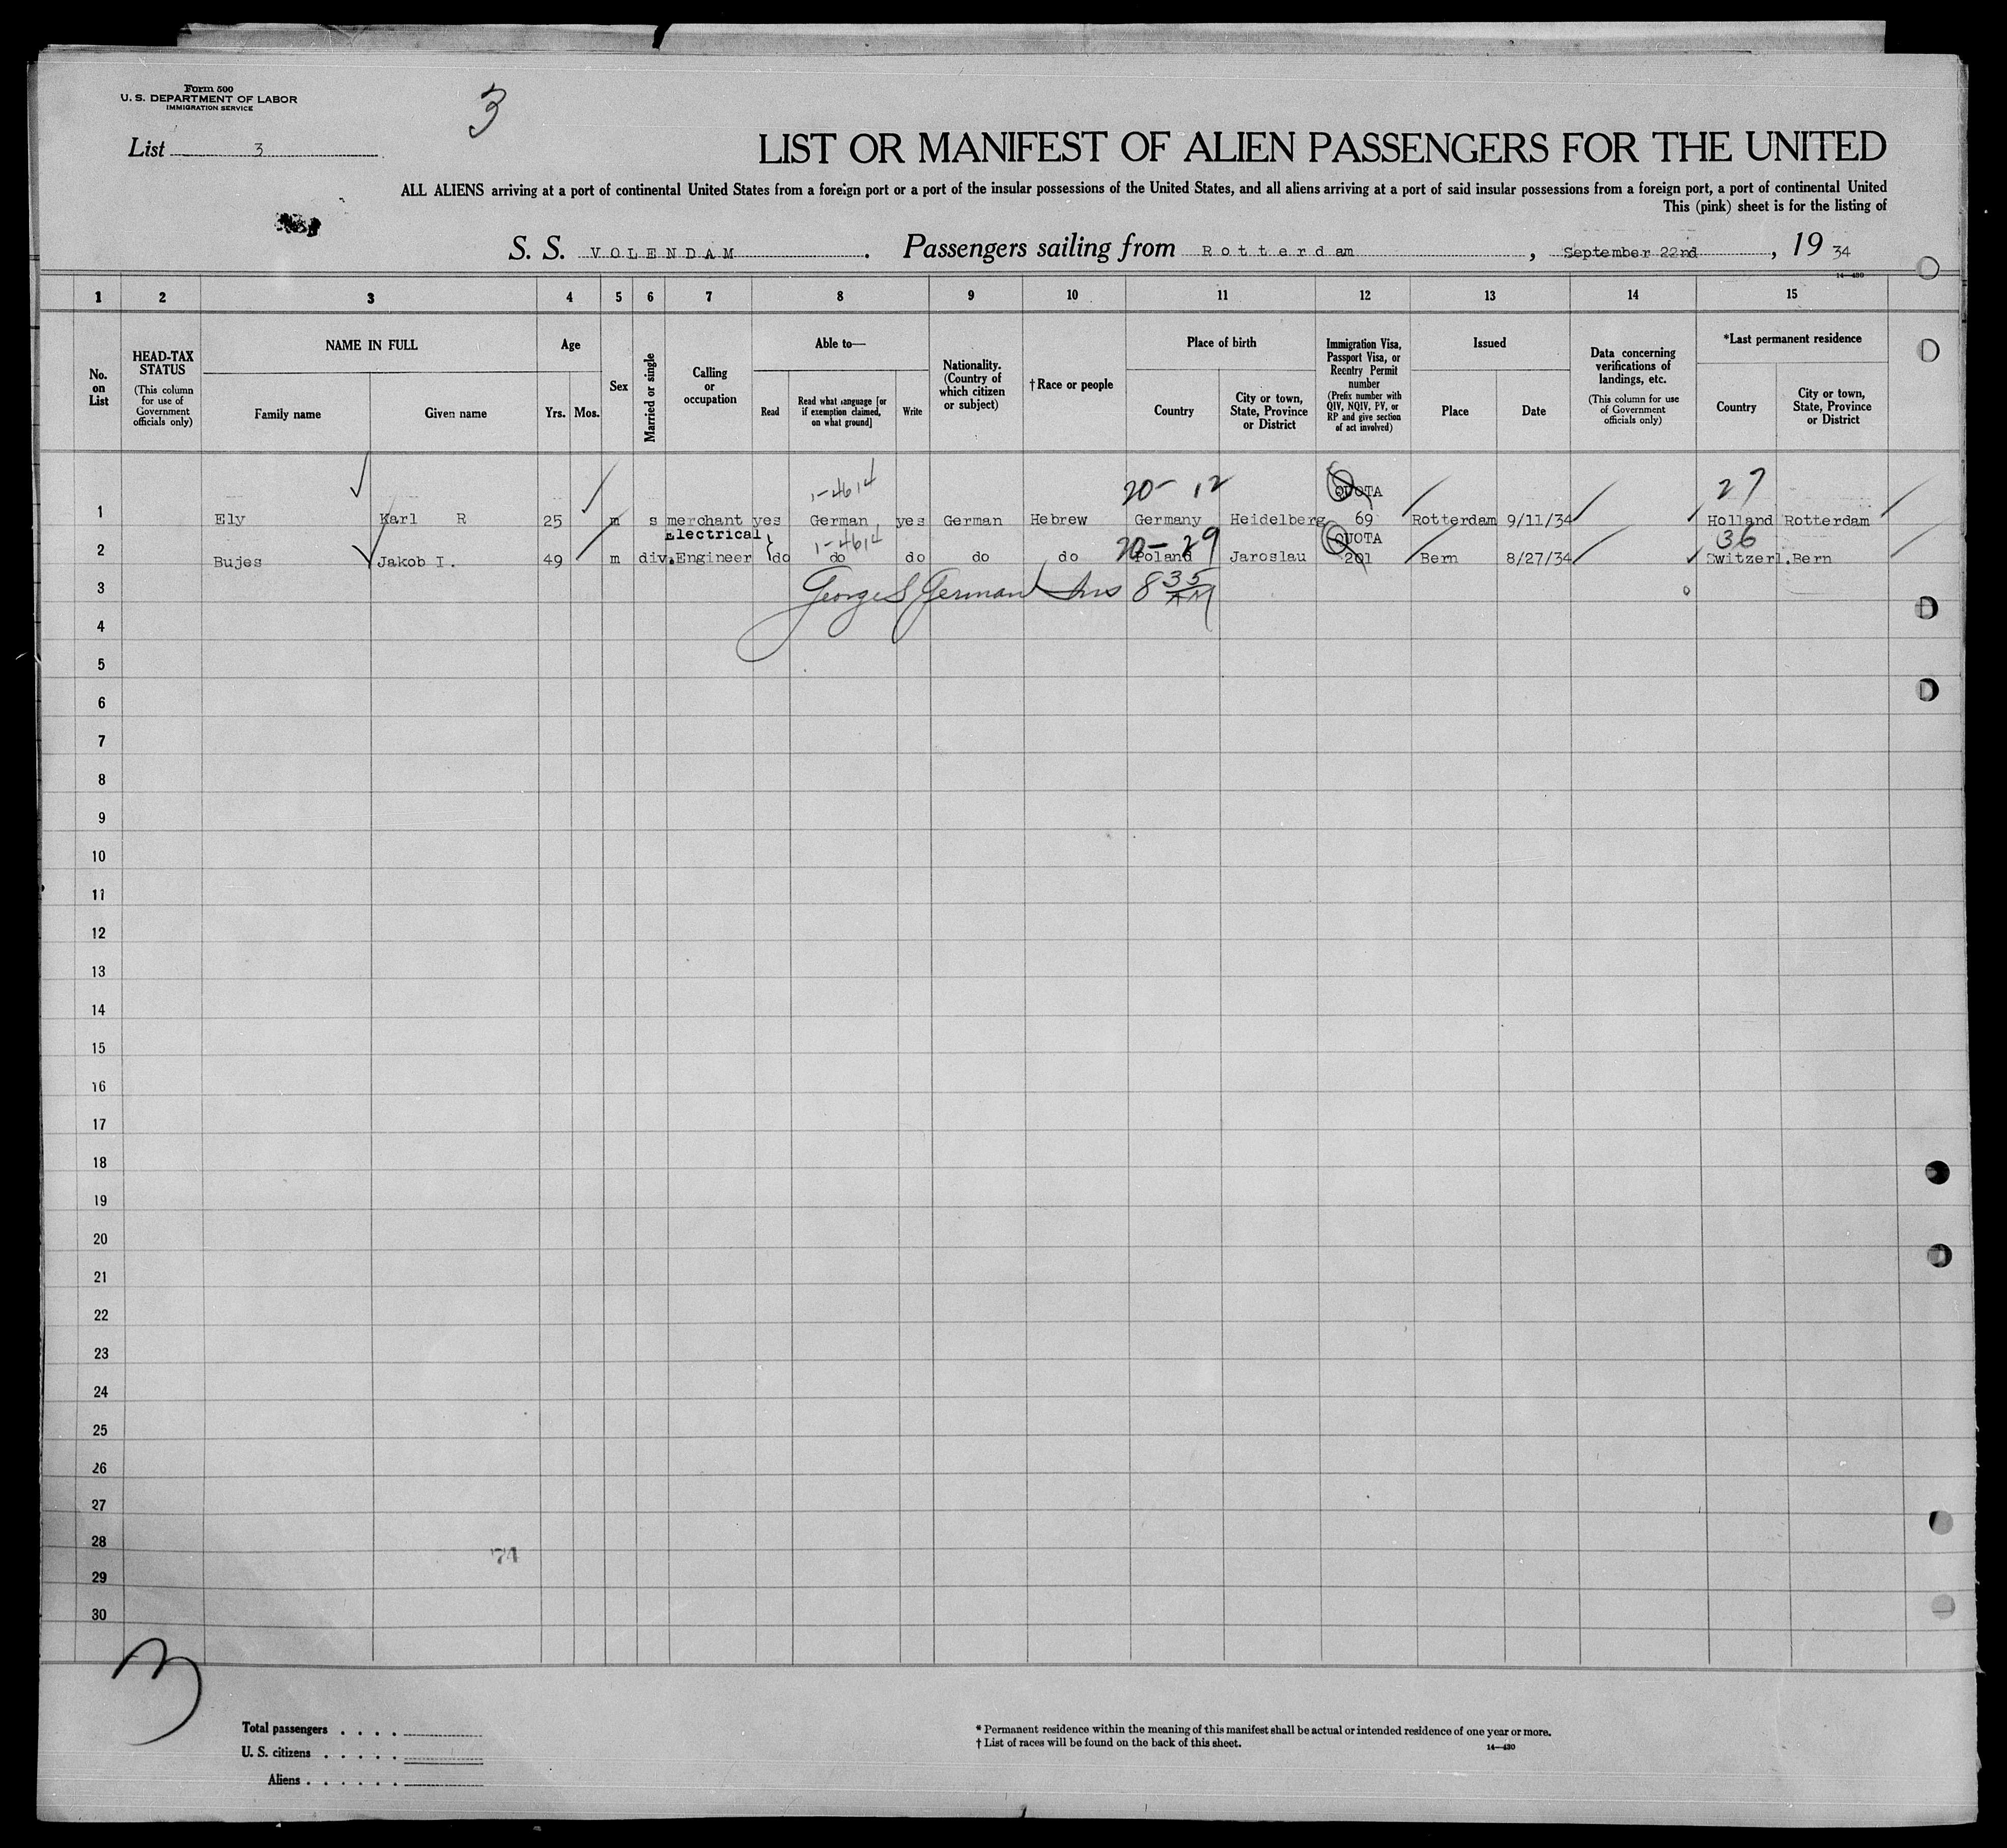 Form 500
U. S. DEPARTMENT OF LABOR
IMMIGRATION SERVICE
3
List 3
LIST OR MANIFEST OF ALIEN PASSENGERS FOR THE UNITED
ALL ALIENS arriving at a port of continental United States from a foreign port or a port of the insular possessions of the United States, and all aliens arriving at a port of said insular possessions from a foreign port, a port of continental United
This (pink) sheet is for the listing of
S. S. VOLENDAM. Passengers sailing from Rotterdam, September 22nd, 1934
14—430
1 2 3 4 5 6 7 8 9 10 11 12 13 14 15
No. on List
HEAD-TAX STATUS
(This column for use of Government officials only)
NAME IN FULL
Family name Given name
Age
Yrs. Mos.
Sex
Married or single
Calling or occupation
Able to—
Read
Read what language [or if exemption claimed, on what ground]
Write
Nationality. (Country of which citizen or subject)
†Race or people
Place of birth
Country
City or town, State, Province or District
Immigration Visa, Passport Visa, or Reentry Permit number
(Prefix number with QIV, NQIV, PV, or RP and give section of act involved)
Issued
Place Date
Data concerning verifications of landings, etc.
(This column for use of Government officials only)
*Last permanent residence
Country
City or town, State, Province or District
1-4614 20- 12 QUOTA 27
1 Ely Karl R 25 m s merchant yes German yes German Hebrew Germany Heidelberg 69 Rotterdam 9/11/34 Holland Rotterdam
Electrical 1-4614 20-29 QUOTA 36
2 Bujes Jakob I. 49 m div. Engineer do do do do do Poland Jaroslau 201 Bern 8/27/34 Switzerl. Bern
3 George S German Ins 8 35 AM
4
5
6
7
8
9
10
11
12
13
14
15
16
17
18
19
20
21
22
23
24
25
26
27
28
74
29
30
3
Total passengers . . . .
U. S. citizens . . . . .
Aliens . . . . . .
* Permanent residence within the meaning of this manifest shall be actual or intended residence of one year or more.
† List of races will be found on the back of this sheet.
14—430